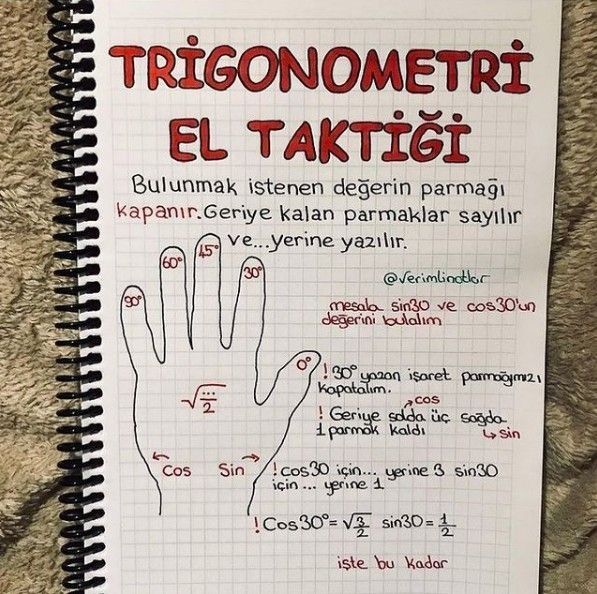 TRİGONOMETRİ
EL TAKTİĞİ
Bulunmak istenen değerin parmağı
kapanır. Geriye kalan parmaklar sayılır
ve...yerine yazılır.
@verimlinotlar
mesala sin30 ve cos30'un
değerini bulalım
90° 60° 45° 30° 0°
√...
2
Cos Sin
! 30° yazan işaret parmağımızı
kapatalım.
cos
! Geriye solda üç sağda
1 parmak kaldı
sin
! cos30 için... yerine 3 sin30
için ... yerine 1
! Cos30°=√3/2 sin30=1/2
işte bu kadar